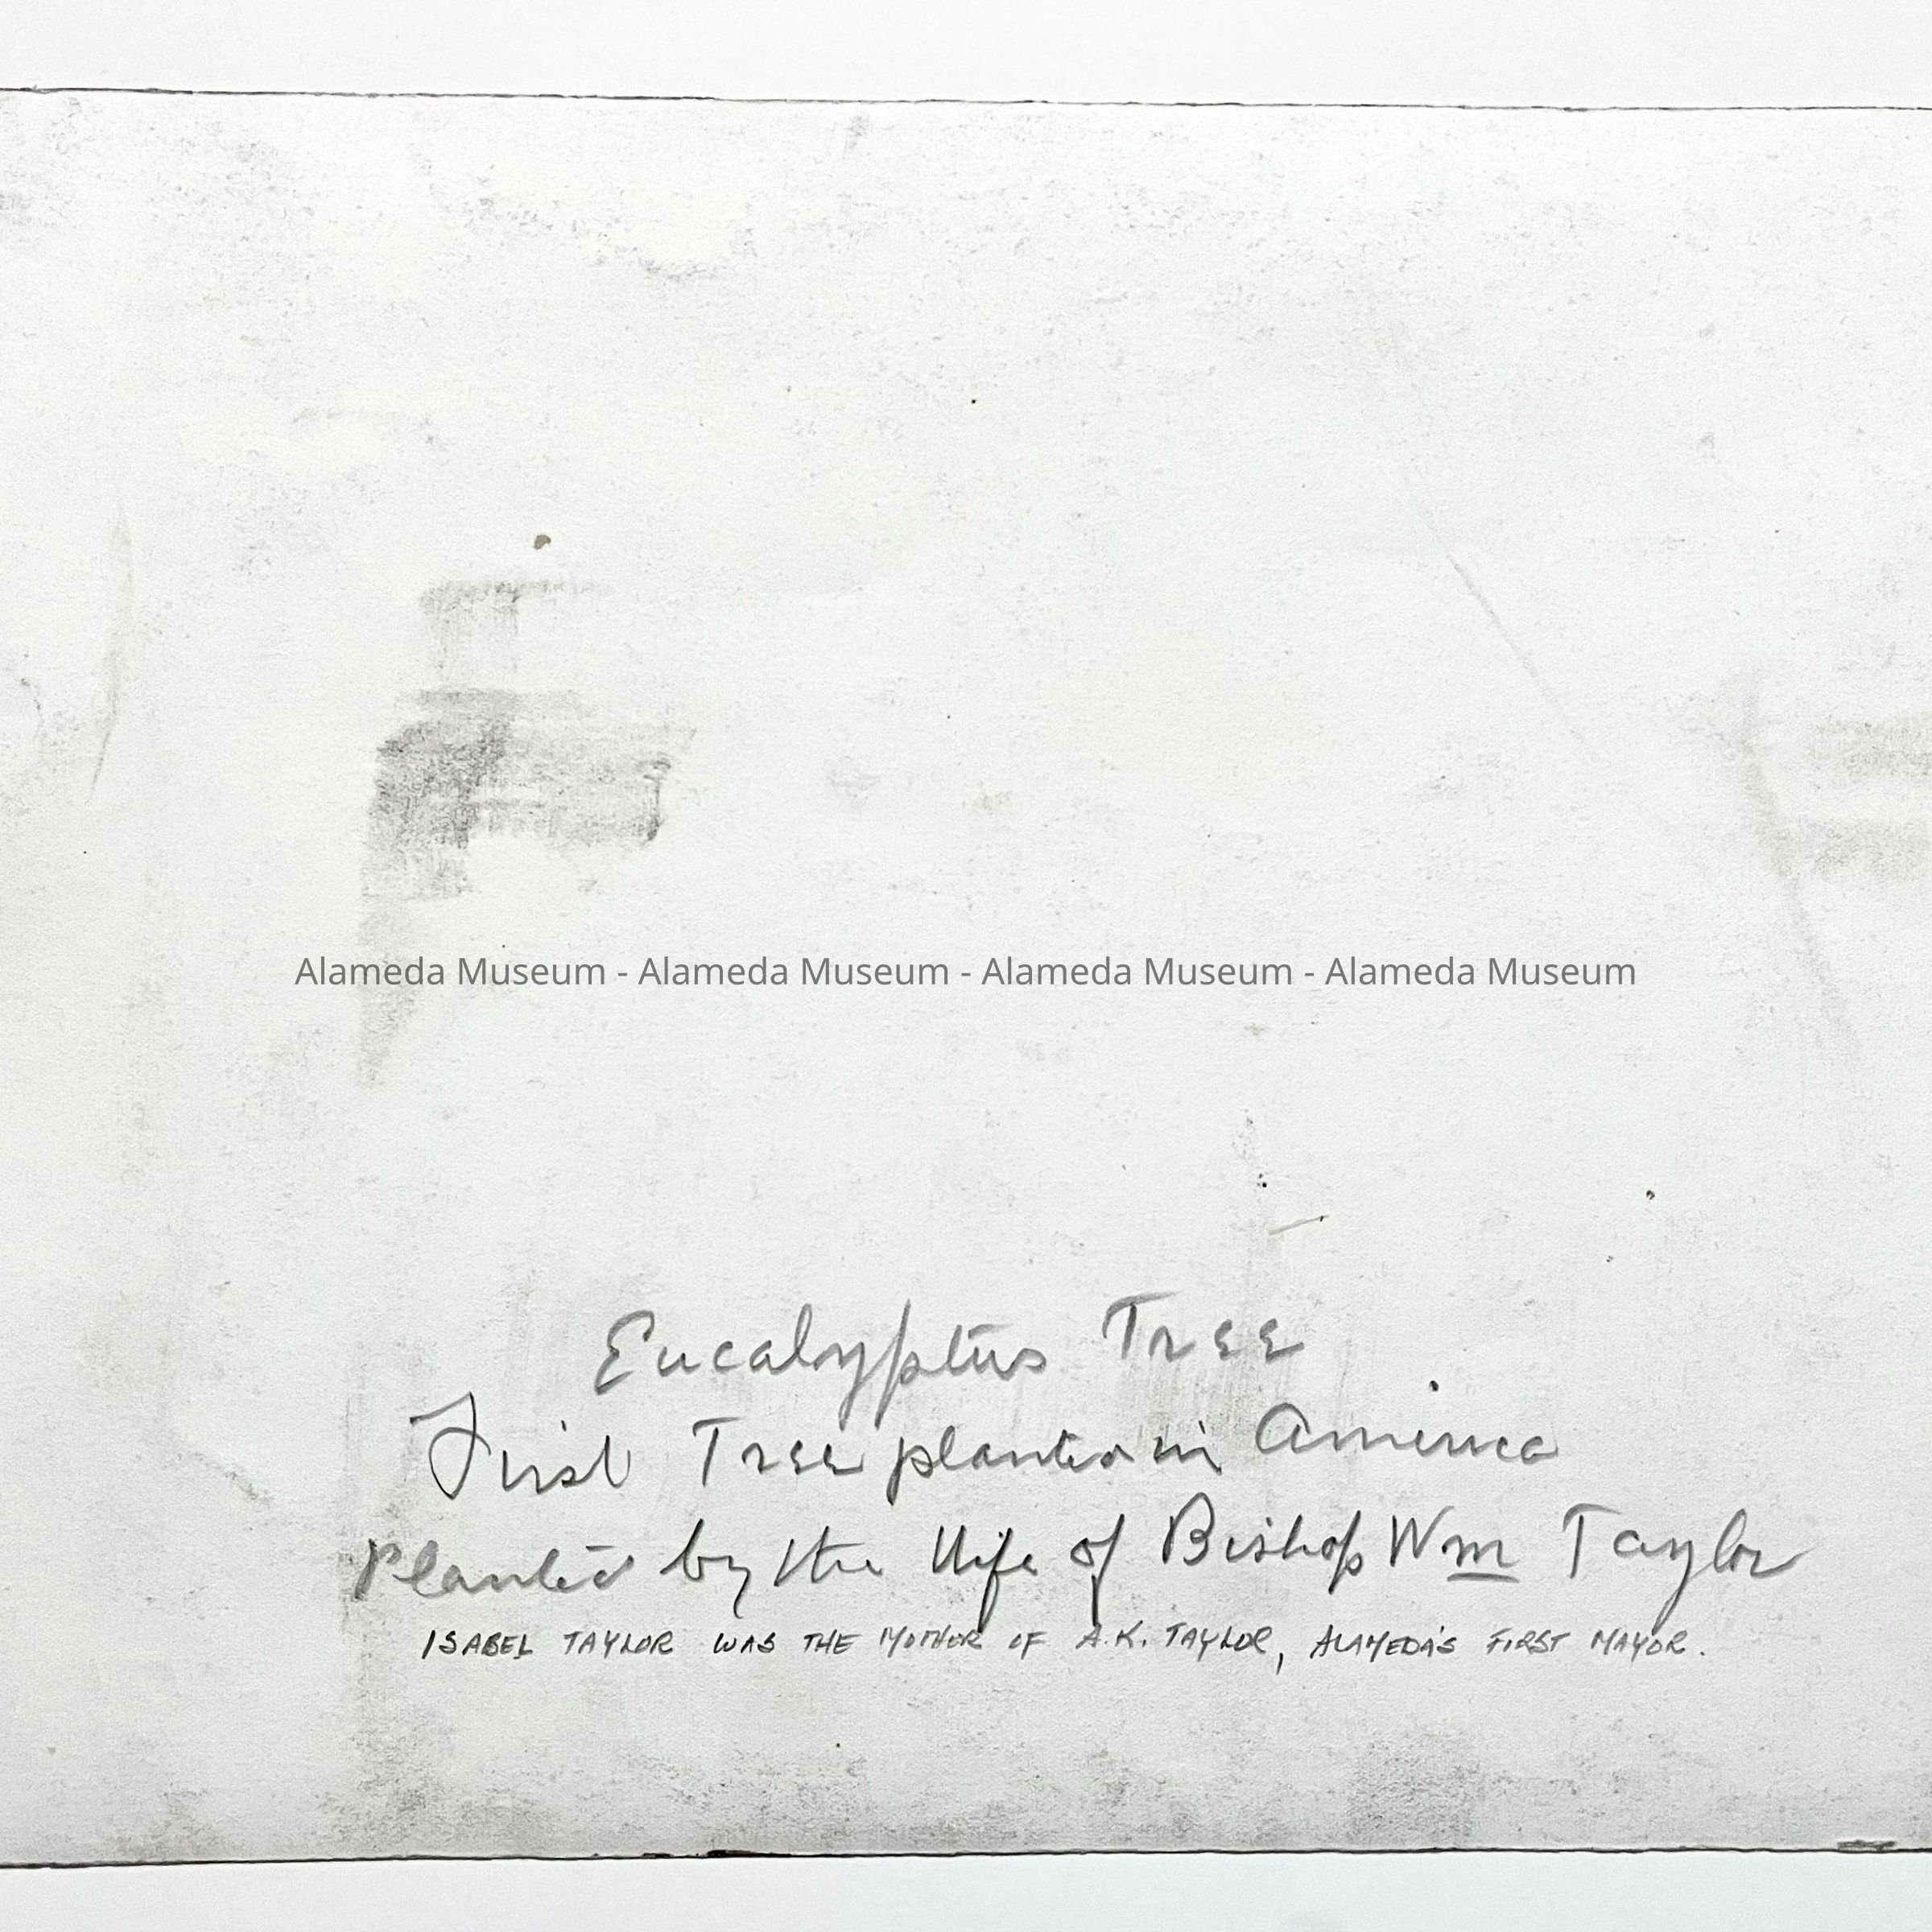 Alameda Museum - Alameda Museum - Alameda Museum - Alameda Museum
Eucalyptus Tree
First Tree planted in America
Planted by the Wife of Bishop Wm Taylor
ISABEL TAYLOR WAS THE MOTHER OF A.K. TAYLOR, ALAMEDA'S FIRST MAYOR.